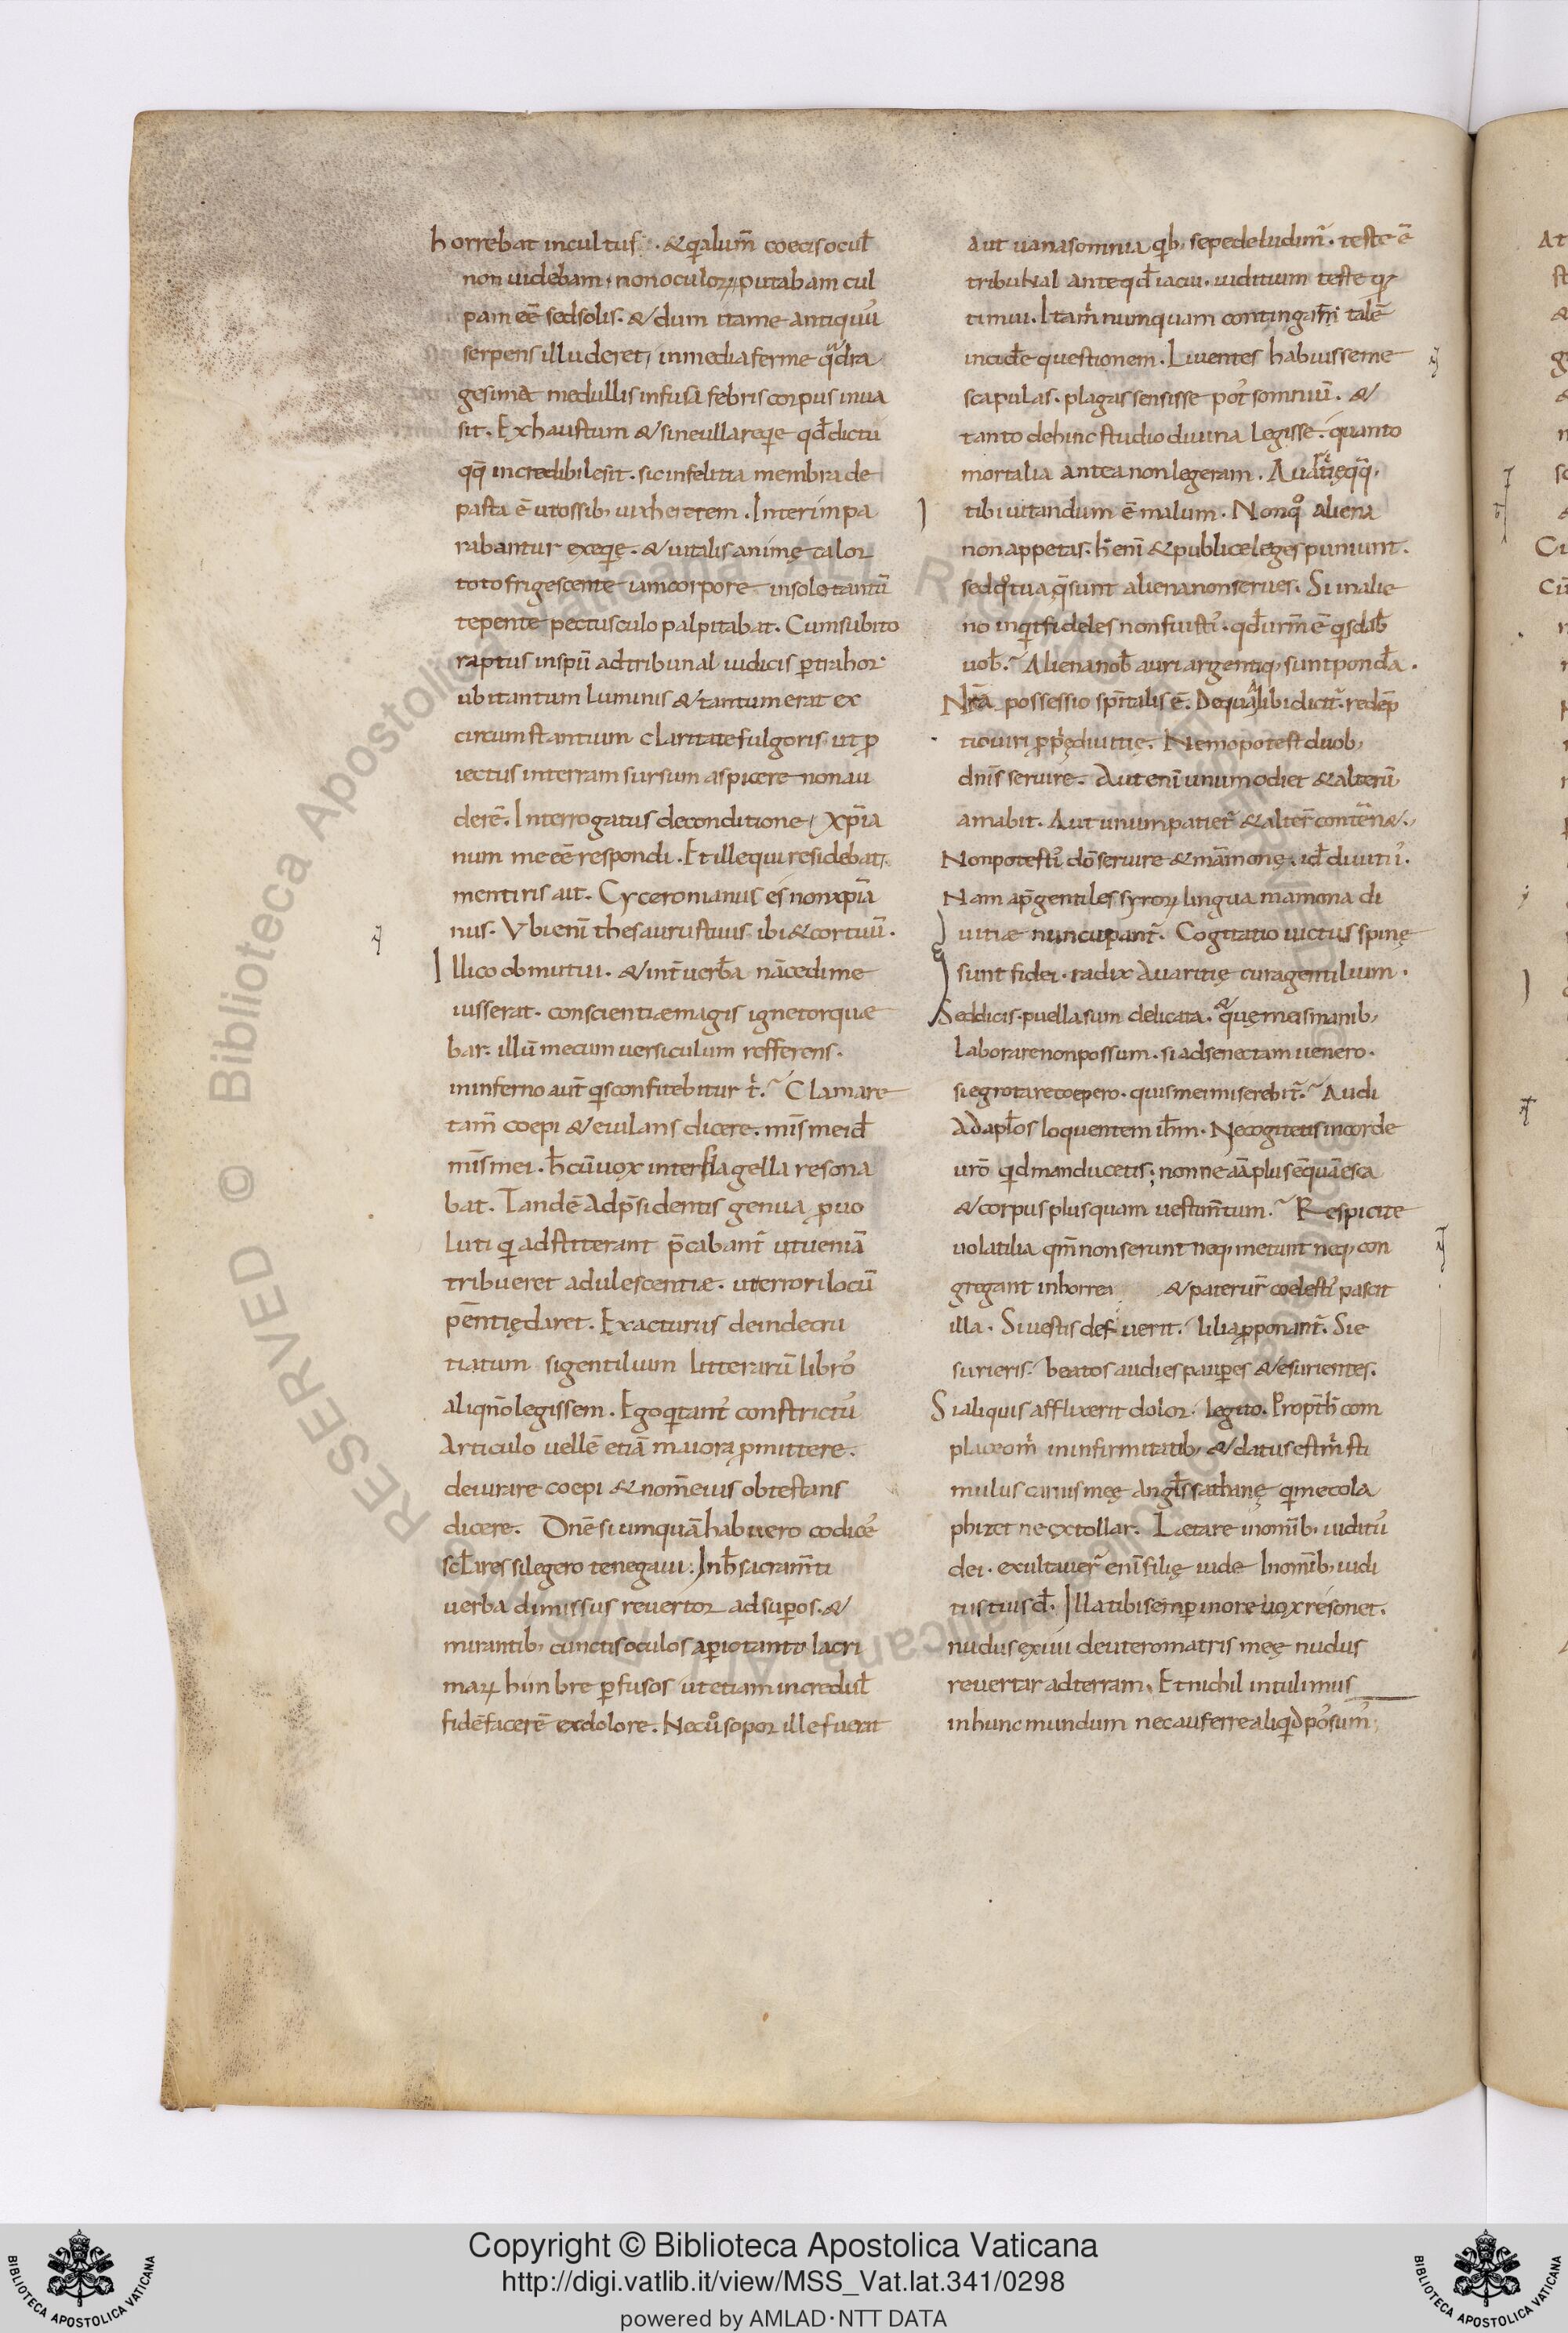 horrebat incultus. & q̄alum̄ coecis ocul̄
non uidebam. non oculoꝝ putabam cul
pam eē sed solis. & dum ita me antiquu᷒
serpens illuderet, in media ferme q̄dra
gesima medullis infusa febris corpus inua
sit. Exhaustum & sine ulla reqͥe qd̄ dictu
qq̄ incredibile sit. sic infelicia membra de
pasta ē ut ossib; uix hererem. Interim pa
rabantur exeqͥę. & uitalis animę calor
toto frigescente iam corpore in solo tantū
tepente pectusculo palpitabat. Cum subito
raptus in spū ad tribunal iudicis ꝑtrahor
ubi tantum luminis & tantum erat ex
circumstantium claritate fulgoris. ut ꝓ
iectus in terram sursum aspicere non au
derē. Interrogatus de conditione, xp̄ia
num me eē respondi. Et ille qui residebat,
mentiris ait. Cyceronianus es non xp̄ia
nus. Vbi enī thesaurus tuus ibi & cor tuū.
Illico obmutui. & int̄ uerb̄a nā cedi me
iusserat. conscientiæ magis igne torque
bar. illū mecum uersiculum refferens.
in inferno aut̄ qͥs confitebitur t͛.? Clamare
tam̄ coepi & eiulans dicere. mis̄ mei d̄
mis̄ mei. h̄ cū uox inter flagella resona
bat. Tandē ad p̄sidentis genua ꝓuo
luti qͥ adstiterant p̄cabant͛ ut ueniā
tribueret adulescentiæ. ut errori locū
pen̄tię daret. Exacturus deinde cru
ciatum si gentilium litterarū libro᷒
aliqn̄o legissem. Ego qͥ tanto constrictu᷒
articulo uellē etiā maiora ꝓmittere.
deiurare coepi & nom̄ eius obtestans
dicere. Dn̄e si umquā habuero codice᷒
scl̄ares si legero te negaui. In h̄ sacram̄ti
uerba dimissus reuertor ad suꝑos. &
mirantib; cunctis oculos aꝑio tanto lacri
maꝝ himbre ꝑfusos ut etiam incredul̄
fidē facerē ex dolore. Nec uͦ sopor ille fuerat
aut uana somnia qͥb; sepe deludim͛. teste ē
tribunal ante qd̄ iacui. iuditium teste qͥ
timui. Ita m͛ numquam contingat m͛ talē
incid̄e questionem. Liuentes habuisse me
scapulas. plagas sensisse po᷒t somniū. &
tanto dehinc studio diuina legisse. quanto
mortalia antea non legeram. Auaritię qq̄,
tibi uitandum ē malum. Non qͦ aliena
non appetas. h̄ enī & publice leges puniunt.
sed qͦ tua q̄ sunt aliena non serues. Si in alie
no inqͥt fideles non fuisti᷒. qd̄ urm̄ ē qͥs dab̄
uob̄.? Aliena nob̄ auri argentiq; sunt pond̄a.
Nr̄a possessio spitalis ē. De qua alibi dicit͛. redēp
tio uiri ꝓpͥę diuitię. Nemo potest duob;
dnīs seruire. Aut enī unum odiet & alterū,
amabit. Aut unum patiet͛ & alter̄ contēn&.,
Non potesti᷒ dō seruire & māmonę. id̄ diuitii᷒.
Nam ap̄ gentiles syroꝝ lingua mamona di
uitiæ nuncupant͛. Cogitatio uictus spinę
sunt fidei. radix auaritię cura gentilium.
Sed dicis. puella sum delicata. & quę meis manib;
laborare non possum. si ad senectam uenero.
si egrotare coepero. quis mei miserebit͛.? Audi
ad apl̄os loquentem ih̄m. Ne cogitetis in corde
urō qͥd manducetis; nonne aīa plus ē quā esca
& corpus plus quam uestim̄tum.? Respicite
uolatilia qm̄ non serunt neq; metunt neq; con
gregant in horrea & pater ur̄ coelesti᷒ pascit
illa. Si uestis defuerit. lilia ꝓponant͛. Si e
surieris. beatos audies pauꝑes & esurientes.
Si aliquis afflixerit dolor. legito. Propth̄ com
placeo m͛ in infirmitatib; & datus est m͛ sti
mulus carnis męę angl̄s sathanę qͥ me cola
phizet ne extollar. Lætare in om̄ib; iuditii᷒
dei. exultauer̄ enī filię iudę In om̄ib; iudi
tiis tuis d̄. Illa tibi semꝑ in ore uox resonet.
nudus exiui de utero matris męę nudus
reuertar ad terram. Et nichil intulimus
in hunc mundum nec auferre aliqͥd po᷒sum᷒;
Copyright © Biblioteca Apostolica Vaticana
http://digi.vatlib.it/view/MSS_Vat.lat.341/0298
powered by AMLAD·NTT DATA
BIBLIOTECA APOSTOLICA VATICANA
BIBLIOTECA APOSTOLICA VATICANA